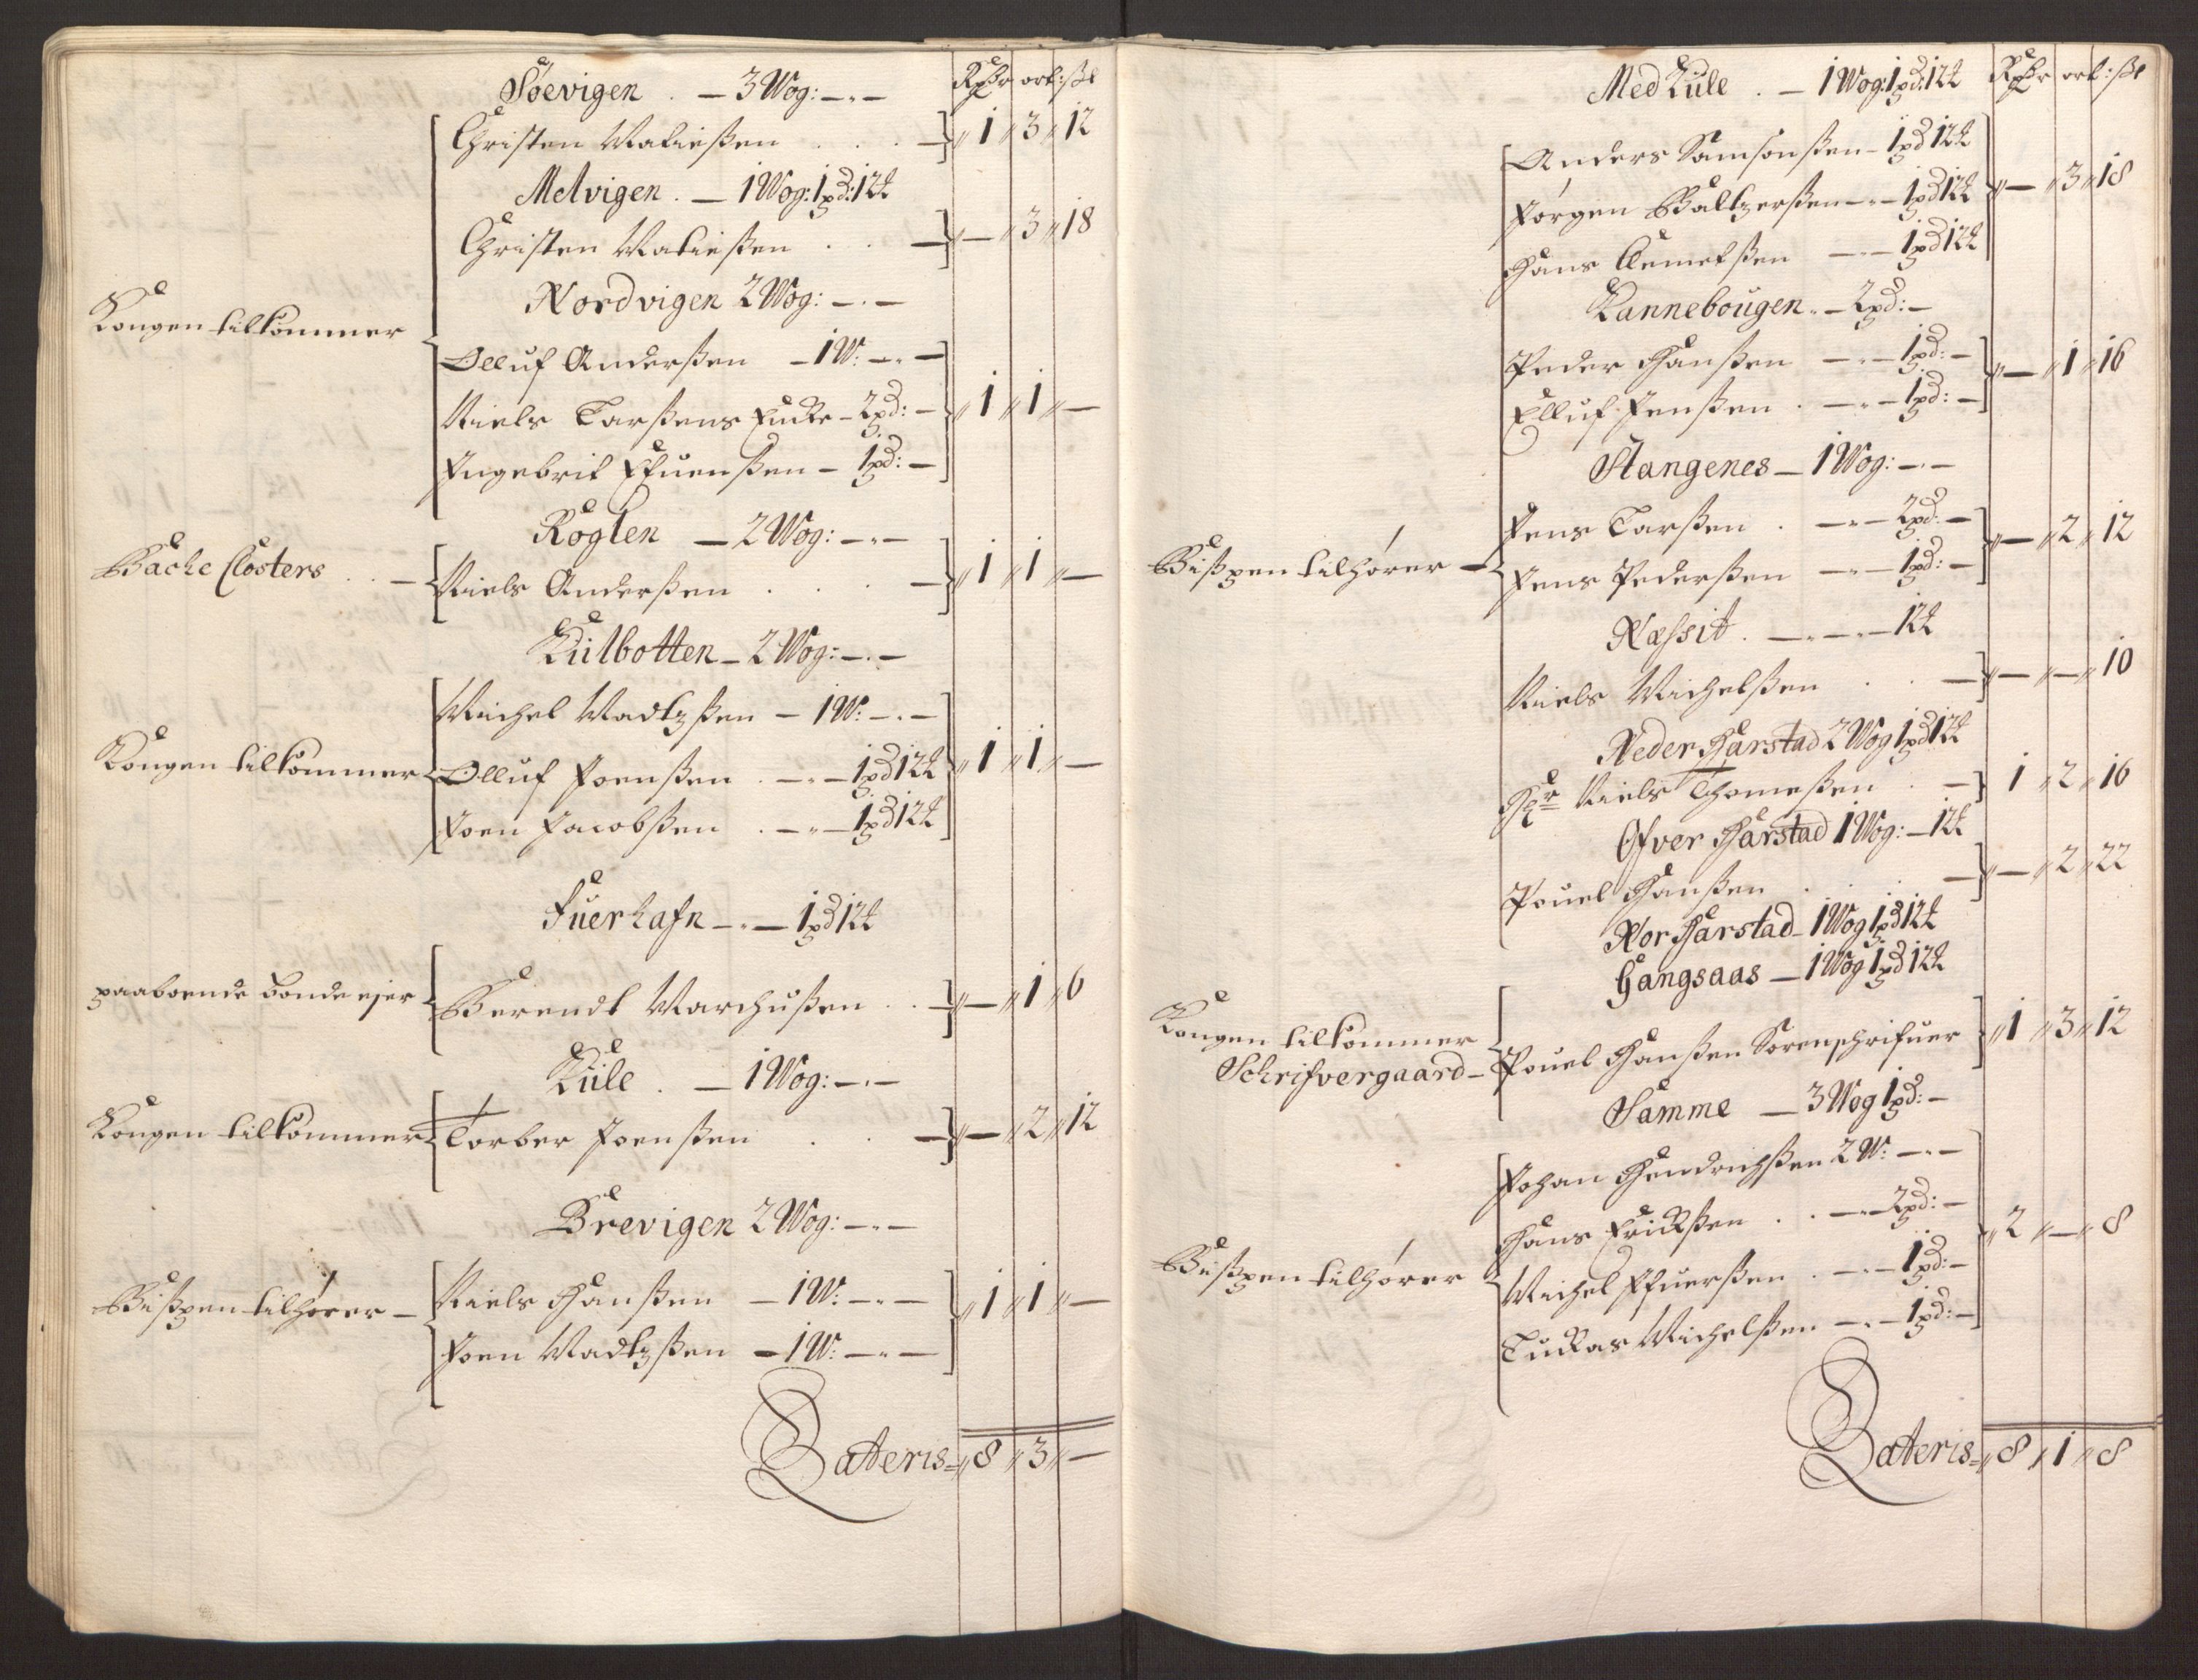 Rdr ort: ſk
Søevigen . — 3 Wog: — " —
Christen Matiesßen . . . — " 1 " 3 " 12
Melvigen . — 1 Wog: 1 pd: 12 ℔
Christen Matiesßen . . — " — " 3 " 18
Nordvigen 2 Wog: — " —
Kongen tilkommer
Olluf Anderßen — 1 W: — " —
Niels Larßens Encke — 2 pd: — " 1 " 1 " —
Ingebrit Efuenßen — 1 pd: —
Røglen — 2 Wog: — " —
Bache Closters . . —
Niels Anderßen . . . — " 1 " 1 " —
Kulbotten — 2 Wog: — " —
Michel Madtzßen — 1 W: — " —
Kongen tilkommer
Olluf Joenßen . — " — 1 pd 12 ℔ " 1 " 1 " —
Joen Jacobßen . — " — 1 pd 12 ℔
Fuerhafn — " — 1 pd 12 ℔
paaboende bonde ejer
Berendt Marchußen . . — " — " 1 " 6
Kule . — 1 Wog: — " —
Kongen tilkommer
Torber Joenßen . . — " — " 2 " 12
Brevigen 2 Wog: — " —
Bißpen tilhører —
Niels Hanßen — 1 W: — " — " 1 " 1 " —
Joen Madtzßen — 1 W: — " —
Lateris " 8 " 3 " —
Rdr ort: ſk
Med Kule . — 1 Wog: 1 pd: 12 ℔
Anders Samsonßen — 1 pd 12 ℔
Jørgen Baltzerßen — " — 1 pd 12 ℔ " — " 3 " 18
Hans Clemetßen — " — 1 pd 12 ℔
Kannebougen " — 2 pd: —
Peder Hanßen — " — 1 pd: — " — " 1 " 16
Elluf Jenßen . — " — 1 pd: —
Stangenes — 1 Wog: — " —
Jens Larßen . — " — 2 pd: — " — " 2 " 12
Bißpen tilhører —
Jens Pederßen — " — 1 pd: —
Næssit . — " — " — 12 ℔
Niels Michelßen . . — " — " — " 10
Neder Harstad 2 Wog 1 pd 12 ℔
Hr Niels Thomeßen . — 1 " 2 " 16
Øfver Harstad 1 Wog: — 12 ℔
Pouel Hanßen . . — " — " 2 " 22
Nor Harstad — 1 Wog 1 pd 12 ℔
Gangsaas — 1 Wog 1 pd 12 ℔
Kongen tilkommer
Schrifvergaard —
Pouel Hanßen Sorenschrifuer " 1 " 3 " 12
Samme — 3 Wog 1 pd: —
Johan Hendrichßen 2 W: — " —
Hans Erickßen . . — " — 2 pd: — " 2 " — " 8
Bißpen tilhører
Michel Ifuerßen . — " — 1 pd: —
Luckas Michelßen — " — 1 pd: —
Lateris " 8 " 1 " 8